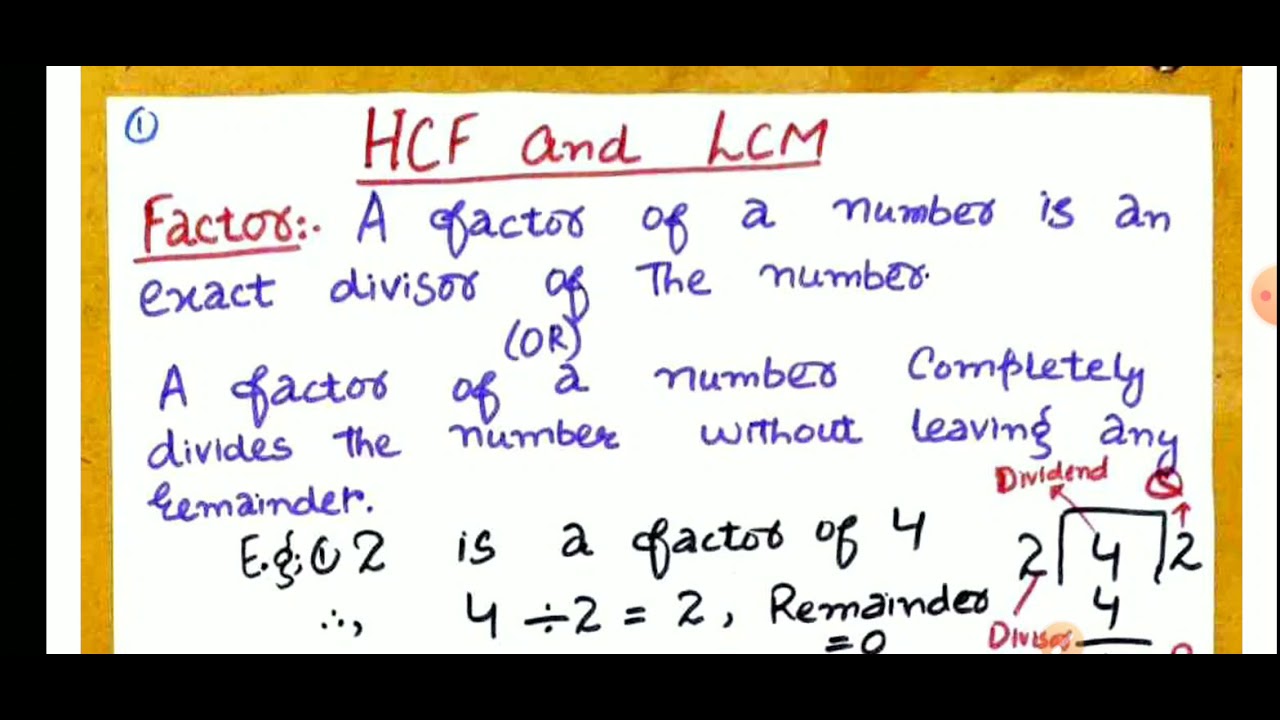 ①
HCF and LCM
Factor:- A factor of a number is an
exact divisor of The number.
(OR)
A factor of a number Completely
divides the number without leaving any
remainder.
Dividend
E.g: ① 2 is a factor of 4
2 4 2
∴, 4 ÷ 2 = 2, Remainder
= 0
4
Divisor